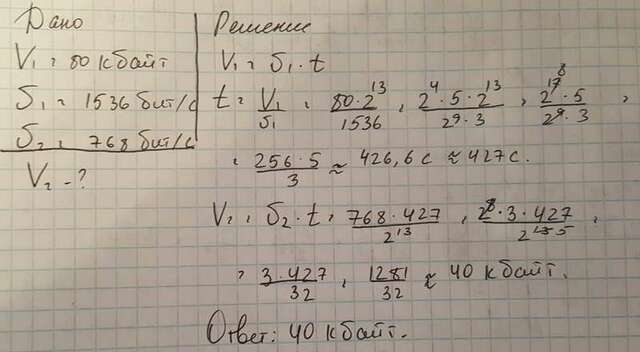 Дано
V₁ = 80 кбайт
S₁ = 1536 бит/с
S₂ = 768 бит/с
V₂ - ?
Решение
V₁ = S₁ · t
t = V₁/S₁ = 80·2¹³/1536 = 2⁴·5·2¹³/2⁹·3 = 2¹⁷ ⁸·5/2⁹·3 =
= 256·5/3 ≈ 426,6 с ≈ 427 с.
V₂ = S₂ · t = 768·427/2¹³ = 2⁸·3·427/2¹³ ⁵ =
= 3·427/32 = 1281/32 ≈ 40 кбайт.
Ответ: 40 кбайт.